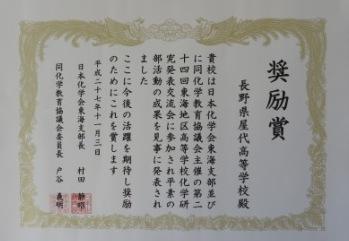 奨励賞
長野県屋代高等学校殿
貴校は日本化学会東海支部並び
に同化学教育協議会主催の第二
十四回東海地区高等学校化学研
究発表交流会に参加され平素の
部活動の成果を見事に発表され
ました
ここに今後の活躍を期待し奨励
のためにこれを賞します
平成二十七年十一月三日
日本化学会東海支部長 村田 静昭
同化学教育協議会委員長 戸谷 義明